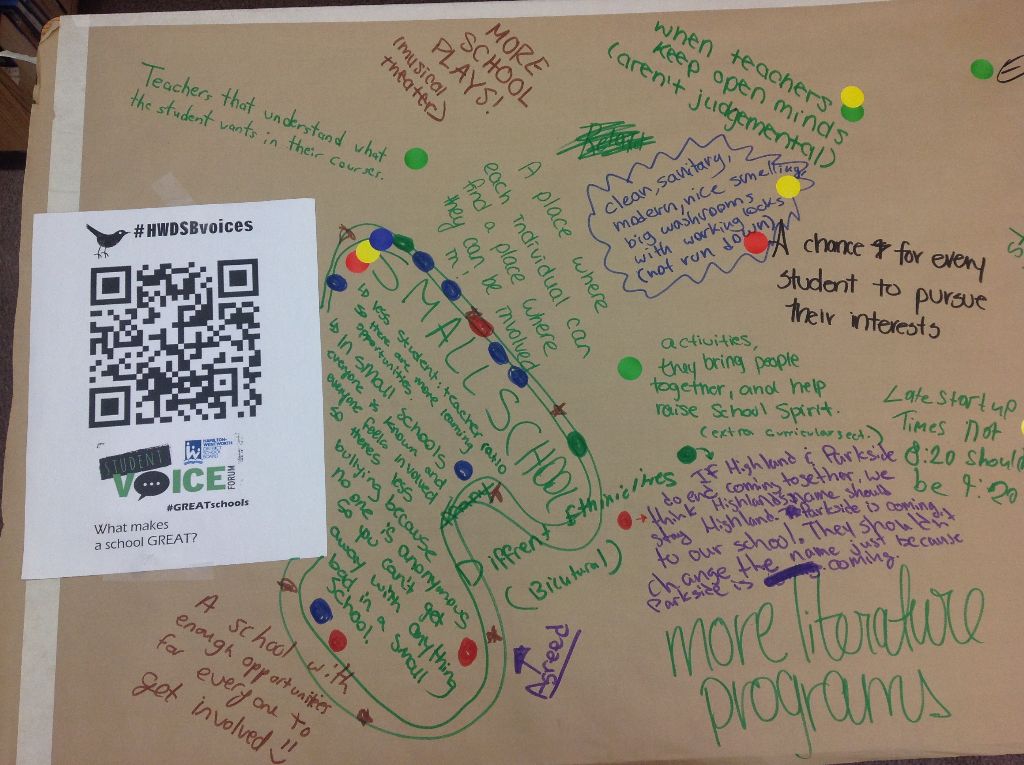 Teachers that understand what
the student wants in their courses.
MORE
SCHOOL
PLAYS!
(musical
theatre)
when teachers
keep open minds
(aren't judgemental)
A place where
each individual can
find a place where
they can be involved
in!
clean, sanitary,
modern, nice smelling,
big washrooms
with working locks
(not run down)
A chance for every
student to pursue
their interests
#HWDSBvoices
STUDENT
VOICE
FORUM
HAMILTON-WENTWORTH
DISTRICT
SCHOOL
BOARD
#GREATschools
What makes
a school GREAT?
SMALL SCHOOL
↳ less student:teacher ratio
so there are more learning
opportunities.
↳ In small schools
everyone is known and
everyone feels involved
so theres less
bullying because
no one is anonymous
so you can't get
away with anything
bad in a small
school.
activities,
they bring people
together, and help
raise School Spirit.
(extra curricular sect.)
Late start up
Times Not
8:20 should
be 9:20
Diffrent ethnicities
(Bicutural)
If Highland & Parkside
do end coming together, we
think Highlands name should
stay Highland. Parkside is coming
to our school. They shouldn't
change the name just because
Parkside is coming.
Agreed
more literature
programs
A school with
enough opportunities
for everyone to
get involved